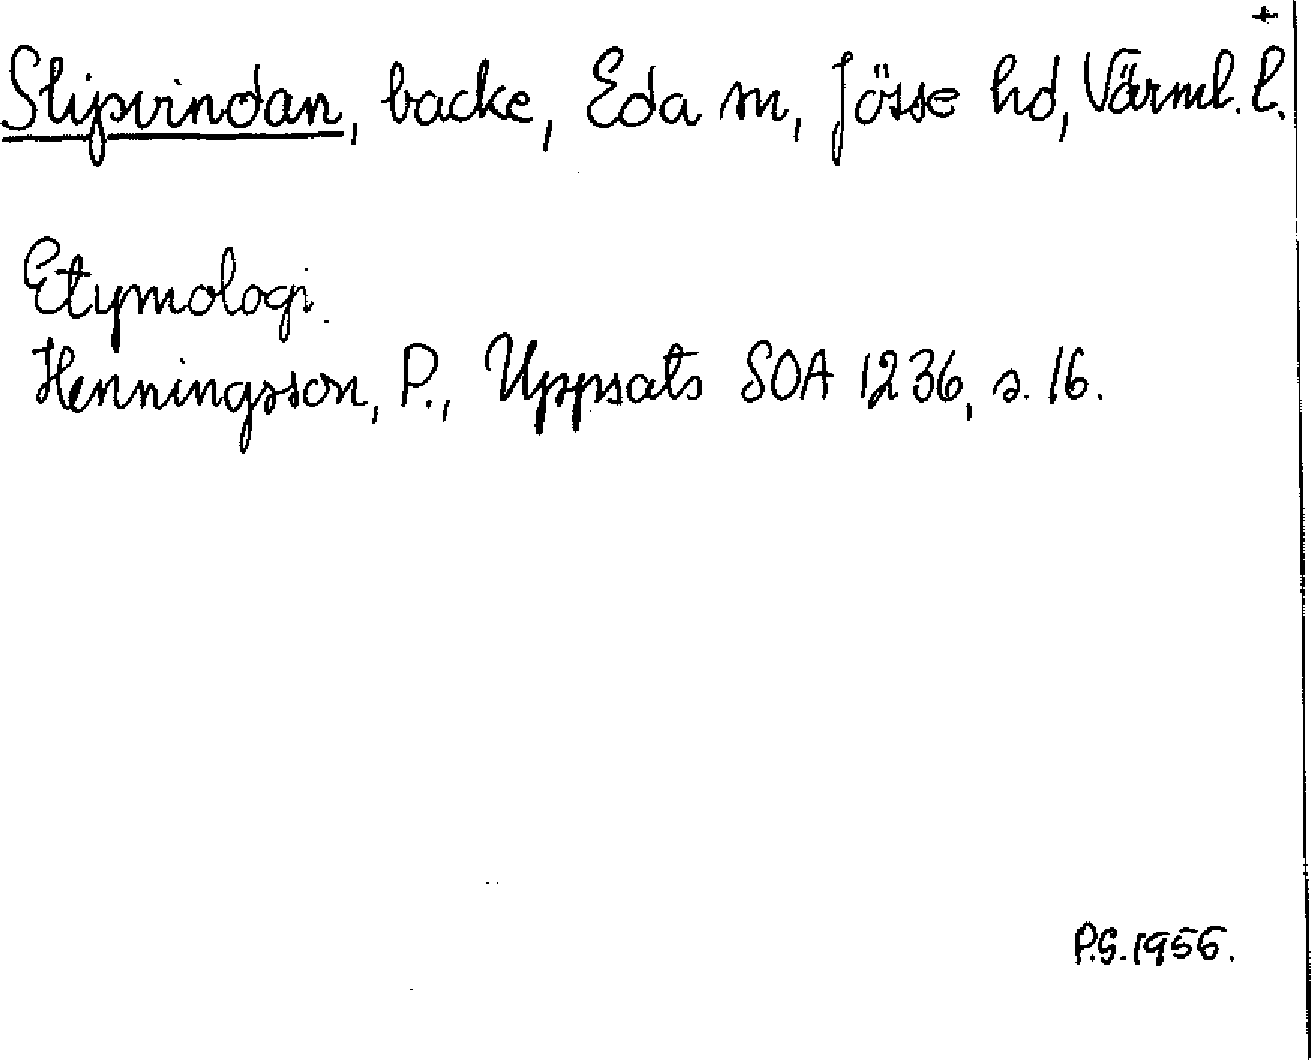 +
Slipvindan, backe, Eda sn, Jösse hd, Värml. l.
Etymologi.
Henningsson, P., Uppsats SOA 1236, s. 16.
P.G. 1956.